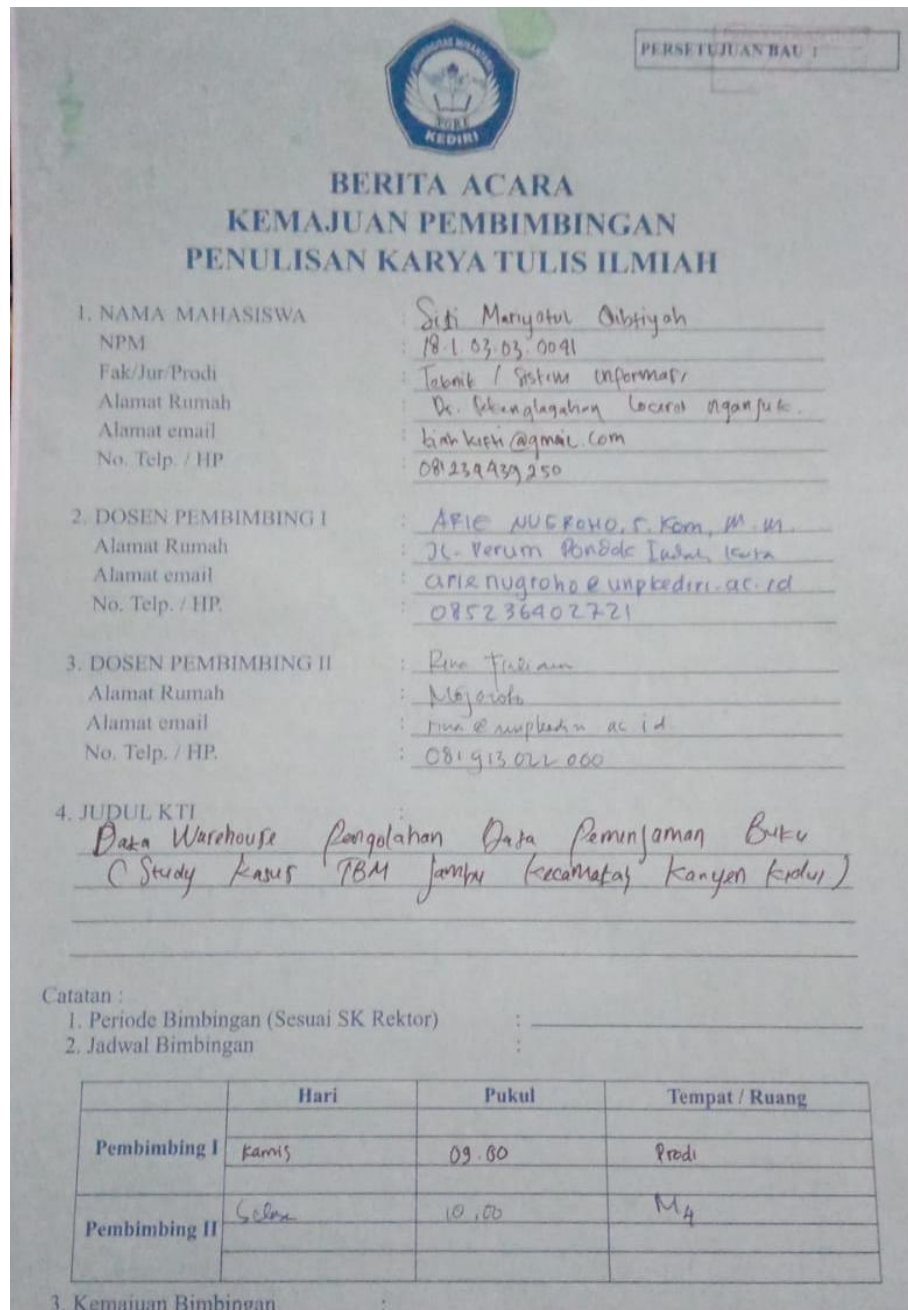 PERSETUJUAN BAU 1
UNIVERSITAS NUSANTARA
PGRI
KEDIRI
BERITA ACARA
KEMAJUAN PEMBIMBINGAN
PENULISAN KARYA TULIS ILMIAH
1. NAMA MAHASISWA : Siti Mariyatul Qibtiyah
NPM : 18.1.03.03.0041
Fak/Jur/Prodi : Teknik / Sistem informasi
Alamat Rumah : Ds. Loceret nganjuk.
Alamat email : @gmail.com
No. Telp. / HP : 081239439250
2. DOSEN PEMBIMBING I : ARIE NUGROHO, S.Kom, M.M.
Alamat Rumah : Jl. Perum Pondok Indah
Alamat email : arienugroho@unpkediri.ac.id
No. Telp. / HP. : 085236402721
3. DOSEN PEMBIMBING II : Rina
Alamat Rumah : Mojoroto
Alamat email : rina@unpkediri ac id
No. Telp. / HP. : 081913022000
4. JUDUL KTI :
Data Warehouse Pengolahan Data Peminjaman Buku
(Study Kasus TBM Jambu Kecamatan Kanyen Kidul)
Catatan :
1. Periode Bimbingan (Sesuai SK Rektor) :
2. Jadwal Bimbingan :
Hari Pukul Tempat / Ruang
Pembimbing I Kamis 09.00 Prodi
Pembimbing II Selasa 10.00 M4
3. Kemajuan Bimbingan :